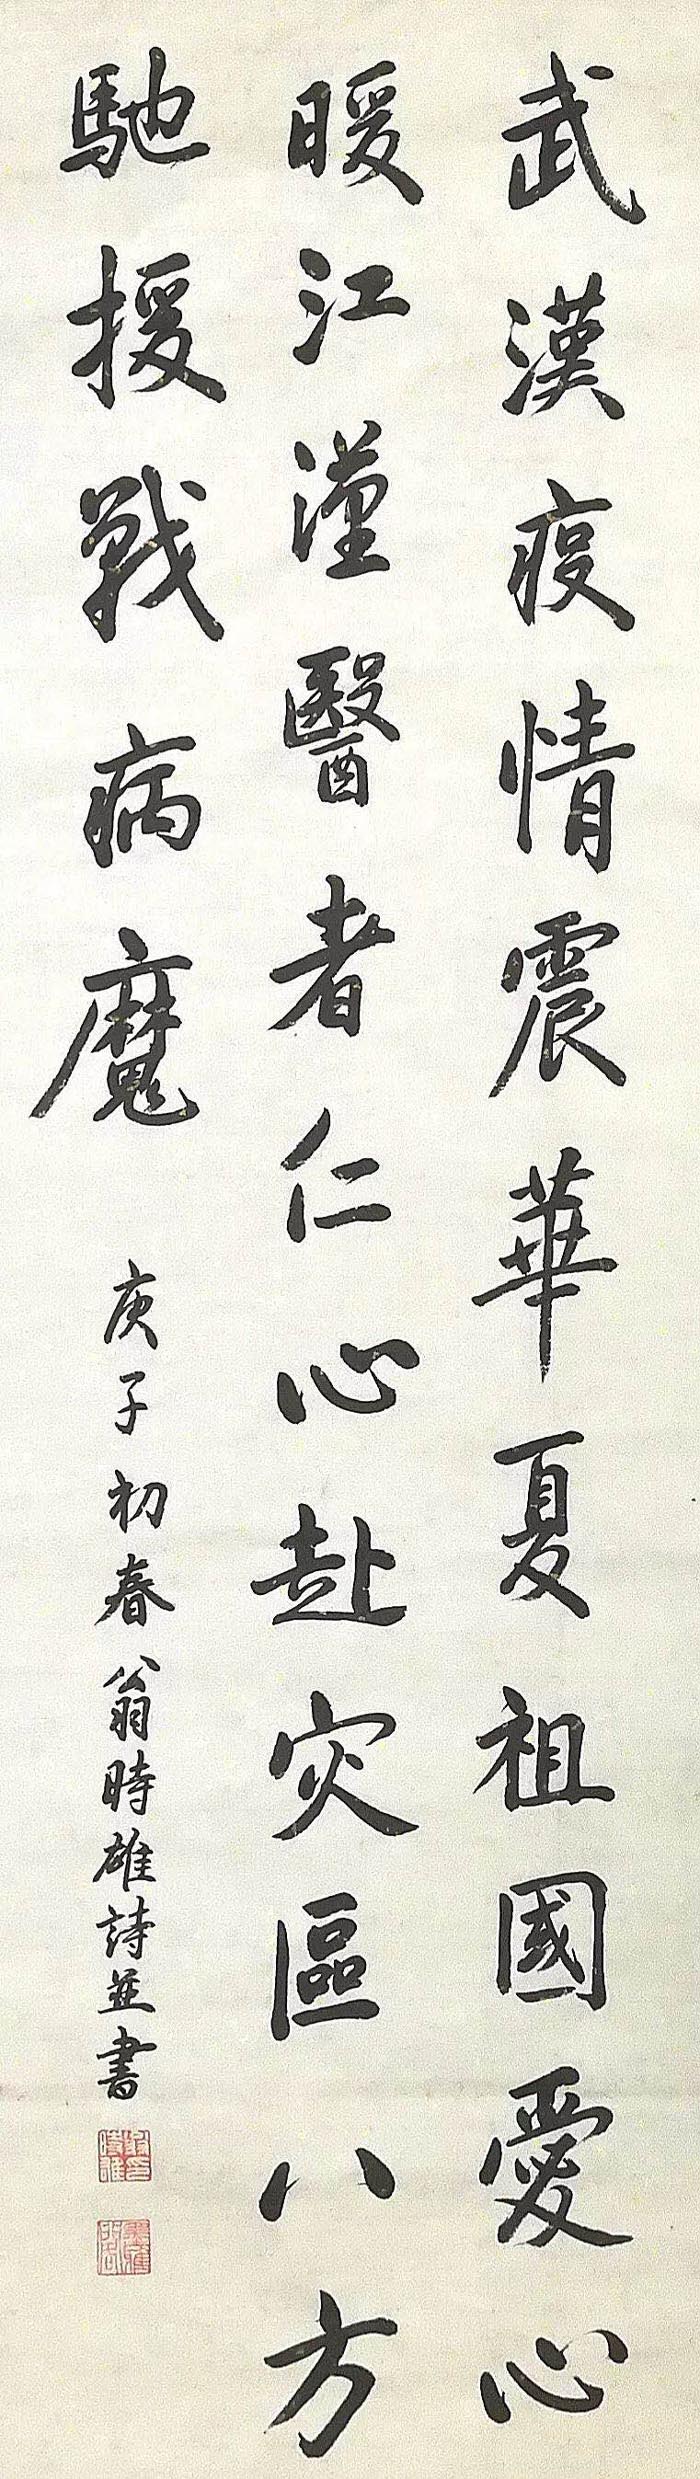 武漢疫情震華夏祖國愛心
暖江漢醫者仁心赴灾區八方
馳援戰病魔
庚子初春翁時雄詩並書